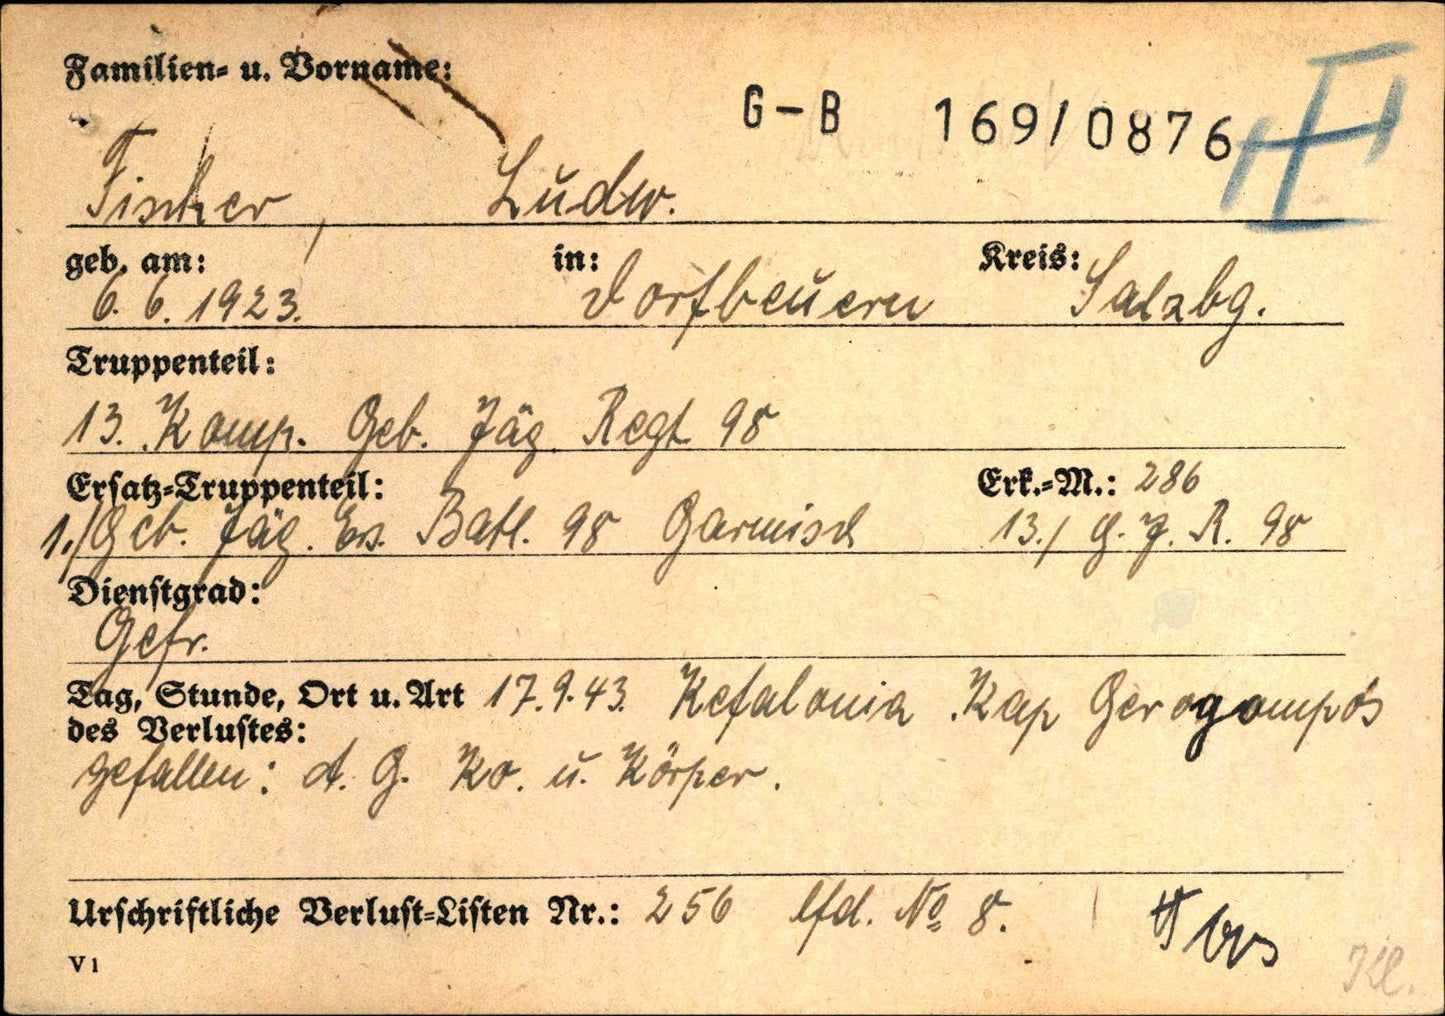 Familien- u. Vorname:
G-B 169/0876
Fischer, Ludw.
geb. am: in: Kreis:
6. 6. 1923. Dorfbeuern Salzbg.
Truppenteil:
13. Komp. Geb. Jäg. Regt 98
Ersatz-Truppenteil: Erk.-M.: 286
1./Geb. Jäg. Ers. Batl. 98 Garmisch 13./ G. J. R. 98
Dienstgrad:
Gefr.
Tag, Stunde, Ort u. Art 17.9.43. Kefalonia Kap Gerogompos
des Verlustes:
gefallen: A. G. Ko. u. Körper.
Urschriftliche Verlust-Listen Nr.: 256 lfd. No 8.
V 1